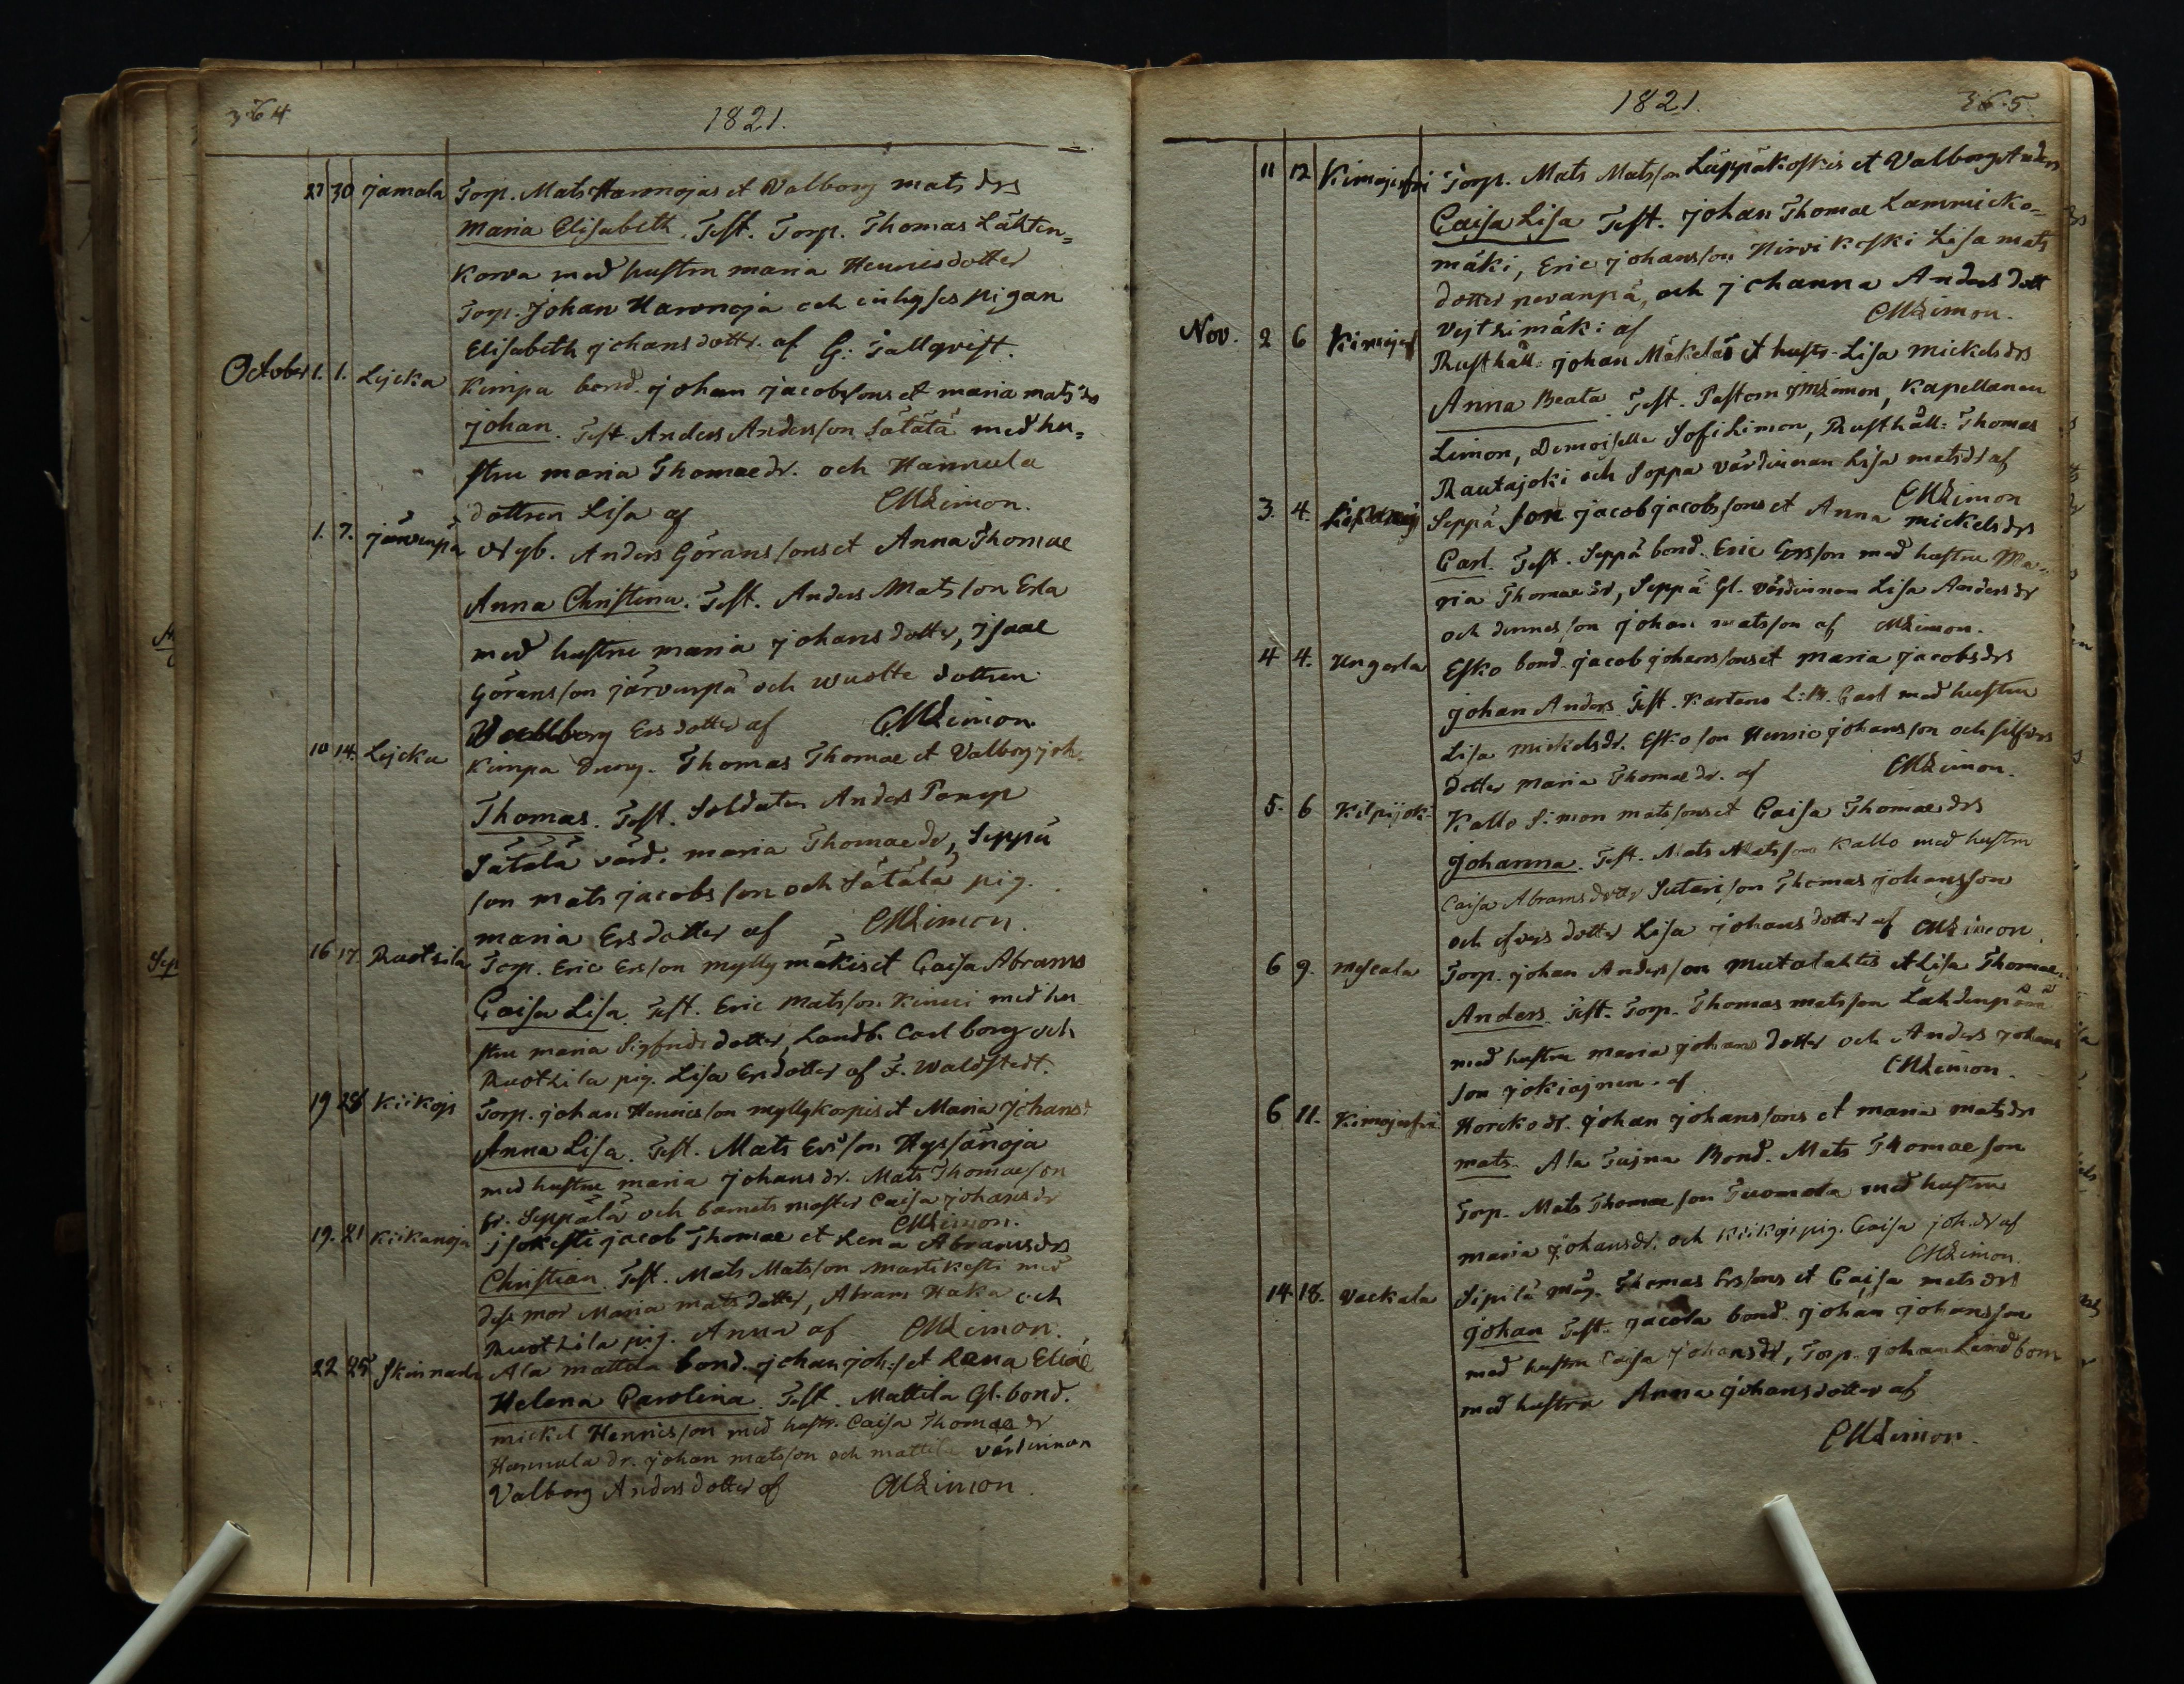 364
1821.
27 30 Jamala Torp. Mats Hannojas et Valborg mats drs
Maria Elisabeth. Test. Torp. Thomas Lähten=
korva med hustru maria Henricsdotter
Torp. Johan Hannoja och inhyses pigan
Elisabeth johansdottr. af G: Tallqvist.
October 1. 1. Lycka Kimpa bond. johan jacobsons et maria mats drs
johan. Test. Anders Andersson Sätälä med hu=
stru maria Thomaedr. och Hannula
dottren Lisa af CMLimon.
1. 7. järvenpä Ngb. Anders Göranssons et Anna Thomae
Anna Christina. Test. Anders Matsson Erla
med hustru maria johansdotter, Isaac
Göransson järvenpä och wuolte dottren
Vallborg Ersdotter af CMLimon.
10 14. Lycka Kimpa Dreng. Thomas Thomae et Valborg joh.
Thomas. Test. Soldaten Anders Pamp
Sätälä värd. maria Thomaedr, Seppä
son mats jacobsson och Sätälä pig.
maria Ersdotter af CMLimon.
16 17. Ruotsila Torp. Eric Ersson myllymäkis et Caisa Abrams
Caisa Lisa. Test. Eric Matsson Kinni med hu
stru maria Sigfridsdotter, Landb. Carlborg och
Ruotsila pig. Lisa Ersdotter af F. Waldstedt.
19 28 Kiikojs Torp. johan Henricsson myllykorpis et Maria johans
Anna Lisa. Test. Mats Ersson Hyssänoja
med hustru maria johansdr. Mats Thomaeson
fr. Seppälä och barnets moster Caisa johansdr
CMLimon.
19. 21 Kiikanoja isokesti jacob Thomae et Lena Abramsdrs
Christian. Test. Mats Matsson Martikesti med
dess mor Maria matsdotter, Abram Haka och
Ruotsila pig. Anna af CMLimon.
22 25 Skinnarla Ala mattila bond. johan joh:s et Lena Eliae
Helena Carolina. Test. Mattila Gl. bond.
mickel Henricsson med hustr. Caisa Thomaedr
Hannula dr. johan matsson och mattila värdinnan
Valborg Andersdotter af CMLimon.
1821.
365
11 12 Kimajerfvi Torp. Mats Matsson Leppäkoskis et Valborg Anders
drs
Caisa Lisa Test. johan Thomae Lammicko=
mäki, Eric johansson Hirvikoski Lisa mats
dotter nevanpä, och johanna Andersdott
vejtsimäki af CMLimon.
Nov. 2 6 Kimajerf Rusthåll: johan Mäkeläs et hustr. Lisa mickelsdrs
Anna Beata. Test. Pastorn JMLimon, Kapellanen
Limon, Demoiselle Sofi Limon, Rusthåll: Thomas
Rautajoki och Soppa värdinnan Lisa matsdr af
CMLimon
3. 4. Seppä son jacob jacobssons et Anna mickelsdrs
Carl. Test. Seppä bond. Eric Ersson med hustru Ma=
ria Thomaedr, Seppä Gl. värdinnan Lisa Andersdr
och dennes son johan matsson af CMLimon.
4 4. Ungorla Esko bond. jacob johanssons et maria jacobsdrs
johan Anders. Test. Kortens L:B. Carl med hustru
Lisa mickelsdr. Esko son Henric johansson och
dotter maria Thomaedr. af CMLimon.
5. 6 Kilpijoki Kallo Simon matssons et Caisa Thomaedrs
Johanna. Test. Mats Matsson Kallo med hustru
Caisa Abramsdotter Sutari son Thomas johansson
och dotter Lisa johansdotter af CMLimon
6 9. Mescala Torp. johan Andersson Mutalahtis et Lisa Thomae.
Anders. Test. Torp. Thomas matsson Lahdenperä
med hustru maria johansdotter och Anders johans
son jokiajnen. af CMLimon.
6 11. Kimajerfvi Horcko dr. johan johanssons et maria matsdr
mats. Ala Tujna Bond. Mats Thomaeson
Torp. Mats Thomaeson Tuomola med hustru
maria johansdr. och Kiikojs pig. Caisa joh.dr af
CMLimon.
14 18. Vackala Sipilä måg. Thomas Erssons et Caisa matsdrs
johan Test. jacola bond. johan johansson
med hustru Caisa johansdr, Torp. johan Lindbom
med hustru Anna johansdotter af
CMLimon.